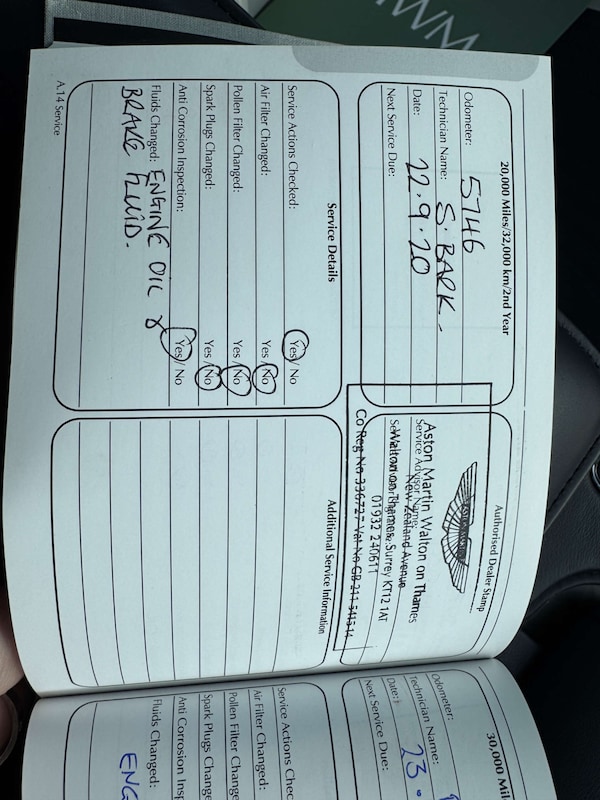 20,000 Miles/32,000 km/2nd Year
Odometer: 5746
Technician Name: S. BARK.
Date: 22.9.20
Next Service Due:
Authorised Dealer Stamp
ASTON MARTIN
Aston Martin Walton on Thames
Service Advisor Name:
New Zealand Avenue
Walton on Thames, Surrey KT12 1AT
01932 240611
Co Reg No 336727 Vat No GB 211 3415 14
Service Details
Service Actions Checked: Yes / No
Air Filter Changed: Yes / No
Pollen Filter Changed: Yes / No
Spark Plugs Changed: Yes / No
Anti Corrosion Inspection: Yes / No
Fluids Changed: ENGINE OIL &
BRAKE FLUID.
Additional Service Information
A.14 Service
30,000 Mil
Odometer:
Technician Name:
Date: 23.
Next Service Due:
Service Actions Chec
Air Filter Changed:
Pollen Filter Change
Spark Plugs Change
Anti Corrosion Insp
Fluids Changed: ENG